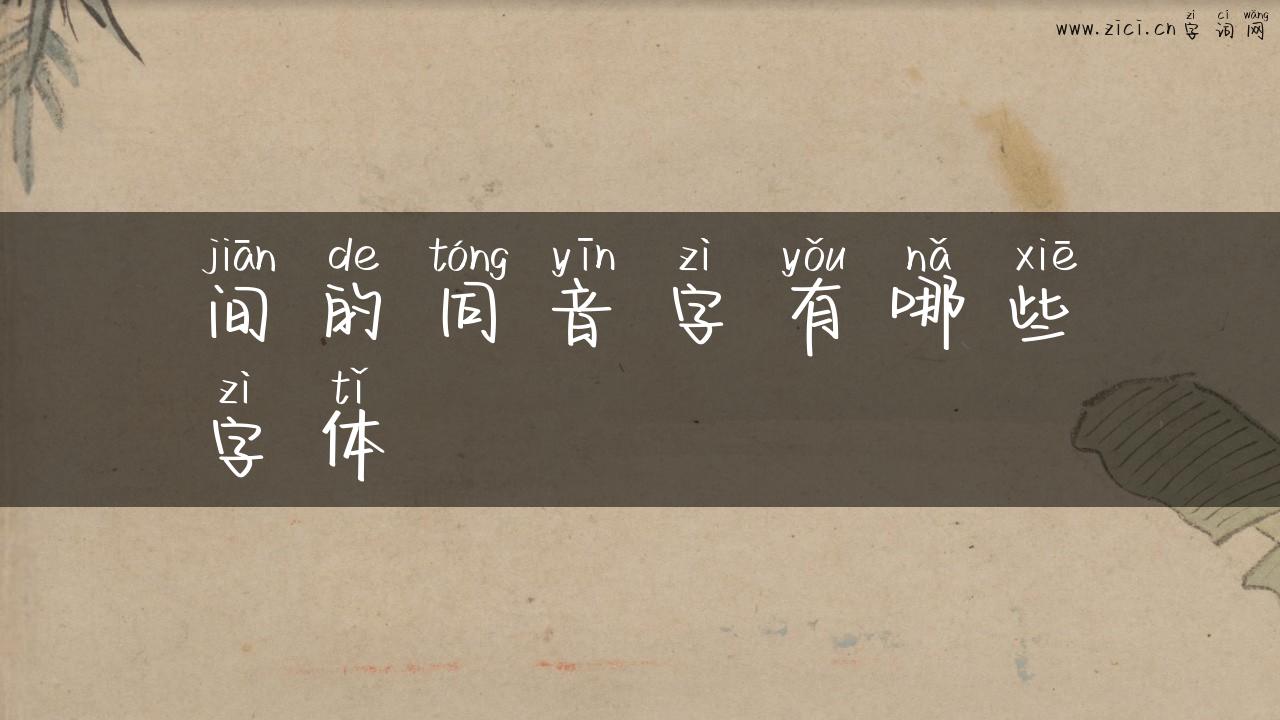 zì cí wǎng
www.zici.cn 字词网
jiān de tóng yīn zì yǒu nǎ xiē
间的同音字有哪些
zì tǐ
字体